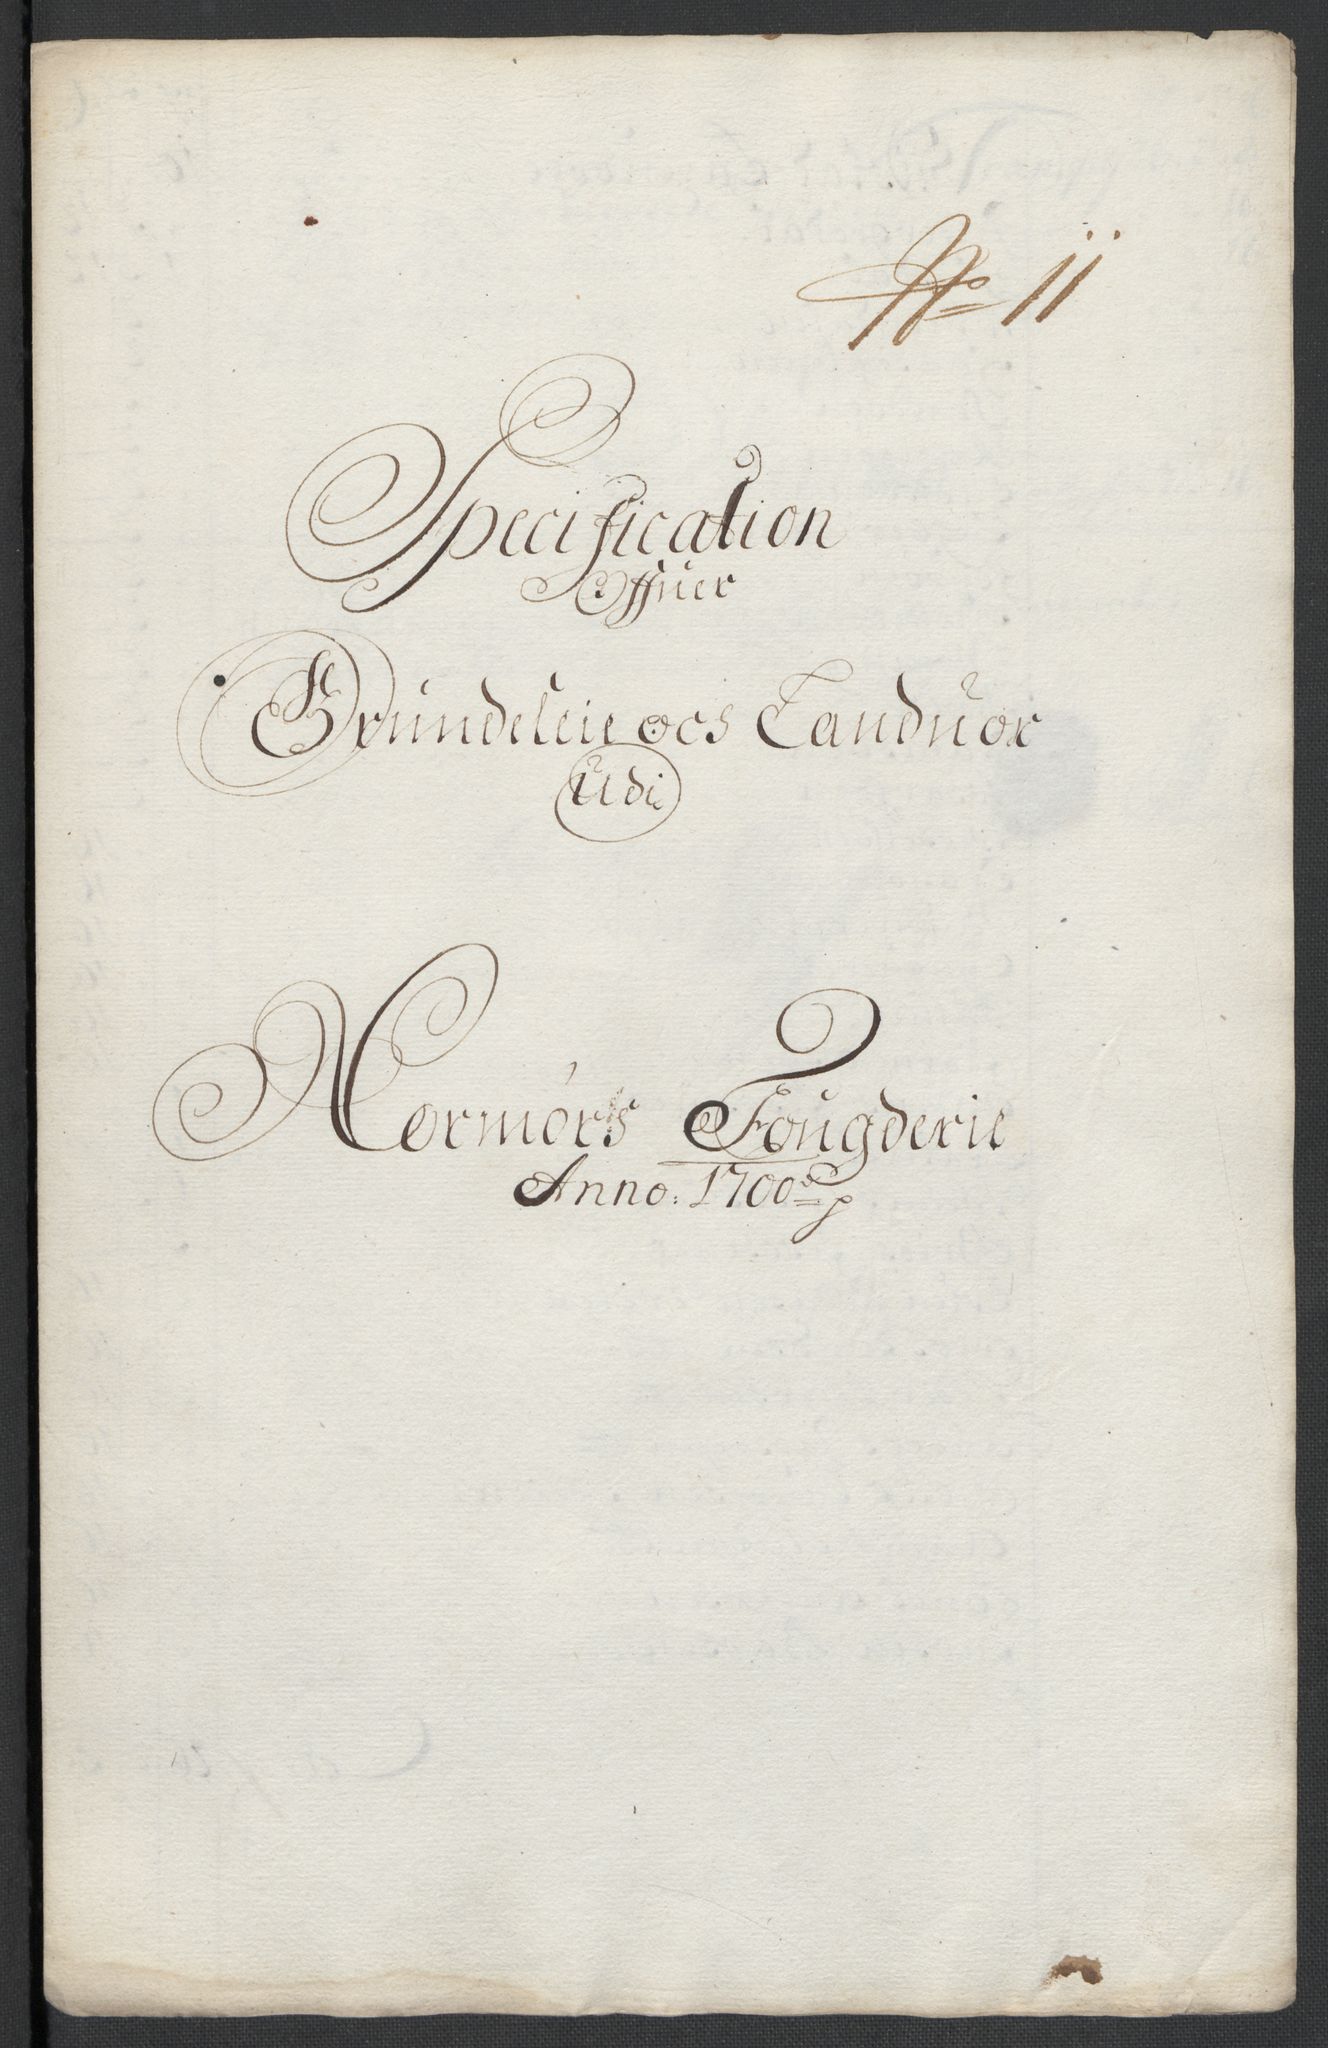 No 11
Specification
Offuer
Grundeleie och Landuor
Udi
Normørs Fougderie
Anno: 1700